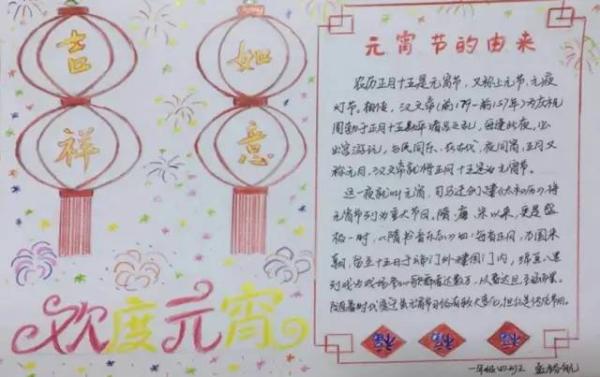 吉祥
如意
欢度元宵
元宵节的由来
农历正月十五是元宵节，又称上元节、元夜、
灯节。相传，汉文帝(前179—前157年)为庆祝
周勃于正月十五勘平诸吕之乱，每逢此夜，
出宫游玩，与民同乐，在古代，夜同宵，正月又
称元月，汉文帝就将正月十五定为元宵节，
这一夜就叫元宵。司马迁
元宵节列为重大节日。隋、唐、宋以来，更是盛
极一时。《隋书音乐志》曰：每当正月，万国来
朝，留至十五日于端门外建国门内，绵亘八里，
列戏为戏场 参加歌舞者达数万，从昏达旦
随着时代 元宵节 有较大变化，但 传统节日。
福 福 福
一年级四班